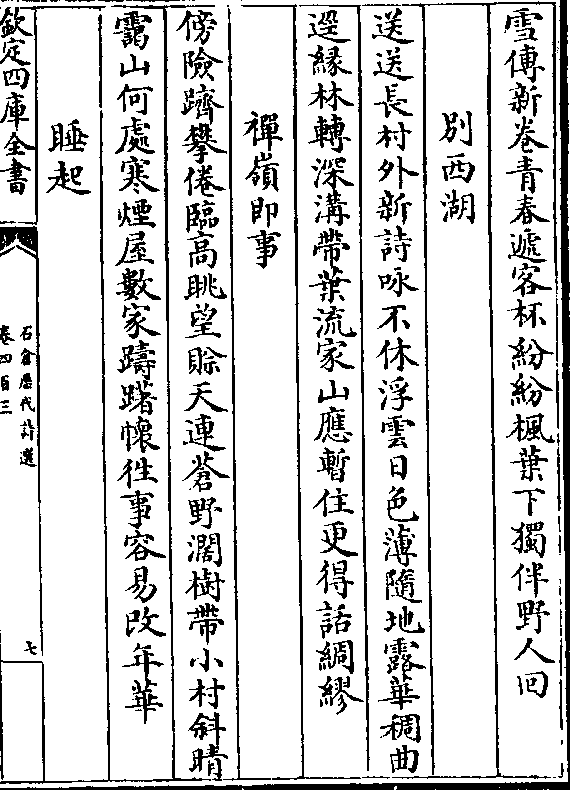 雪傳新卷青春遞客杯紛紛楓葉下獨伴野人回
別西湖
送送長村外新詩咏不休浮雲日色薄隨地露華稠曲
逕緣林轉深溝帶葉流家山應暫住更得話綢繆
禪嶺即事
傍險躋攀倦臨高眺望賒天連蒼野濶樹帶小村斜晴
靄山何處寒煙屋數家躊躇懷徃事容易改年華
睡起
欽定四庫全書
石倉歷代詩選
卷四百三
七